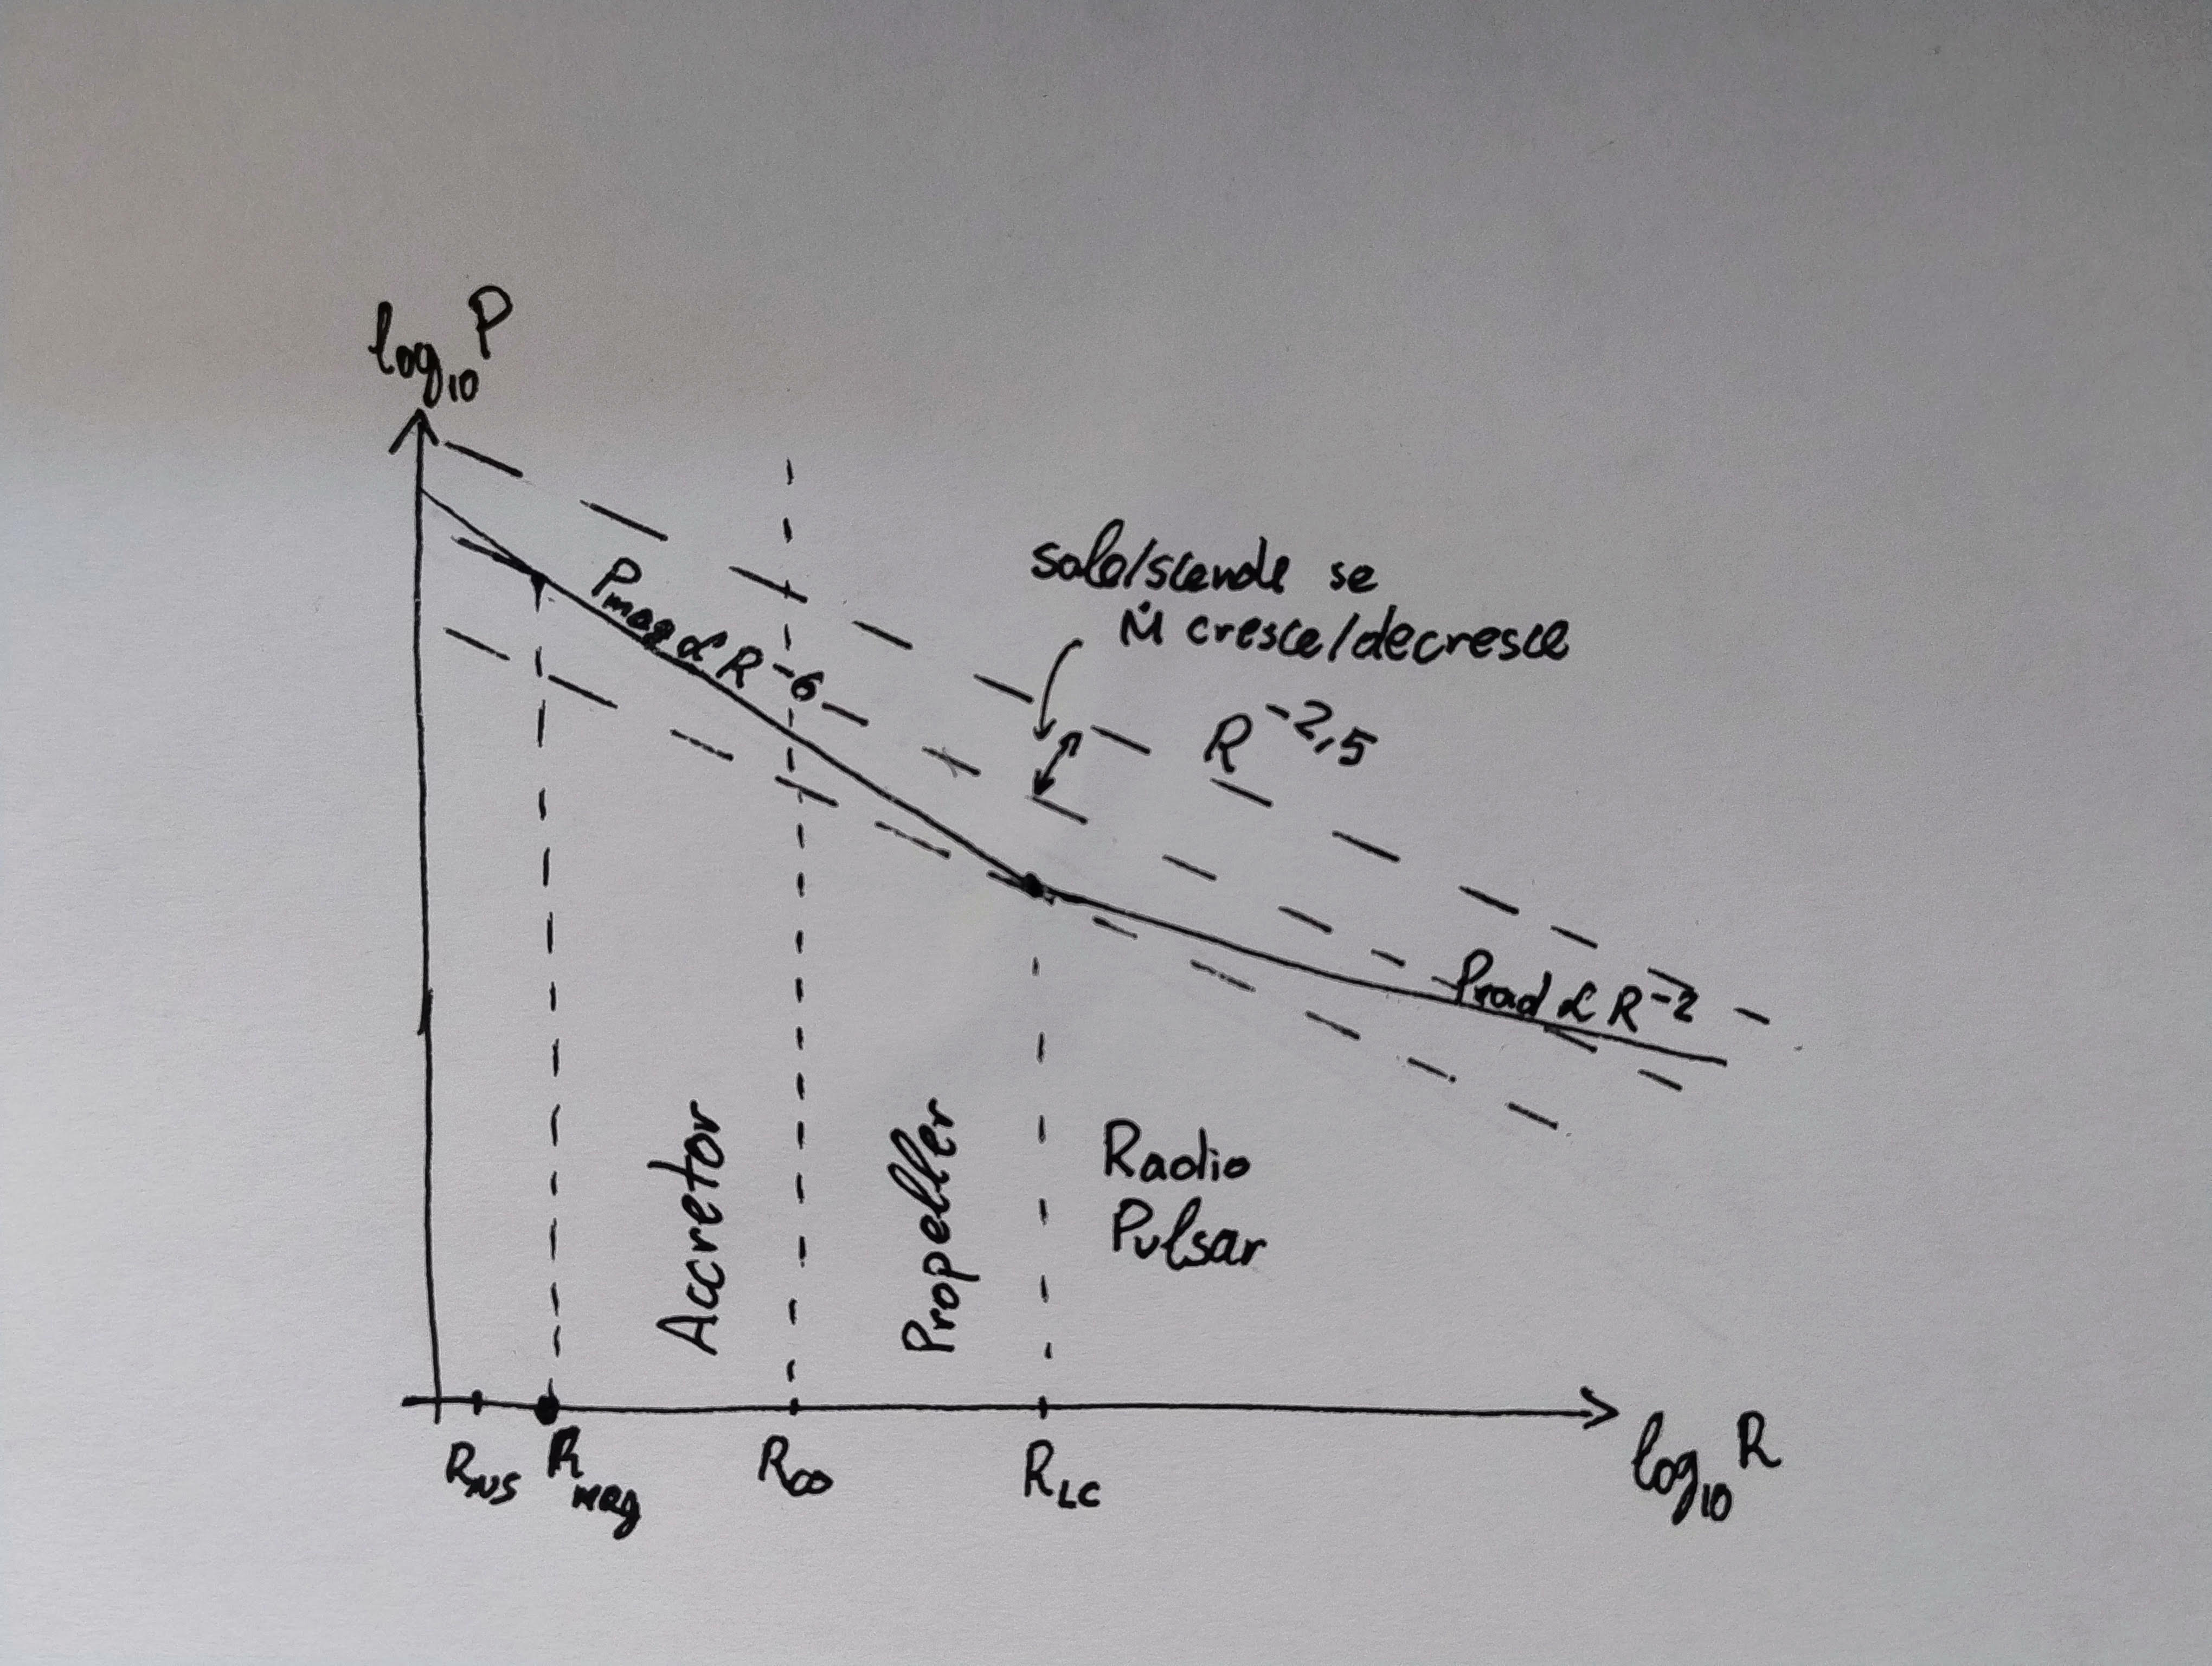 log₁₀ P
sale/scende se
Ṁ cresce/decresce
Pmag ∝ R⁻⁶
R⁻²,⁵
Prad ∝ R⁻²
Accretor
Propeller
Radio
Pulsar
R_NS
R_mag
R_co
R_LC
log₁₀ R